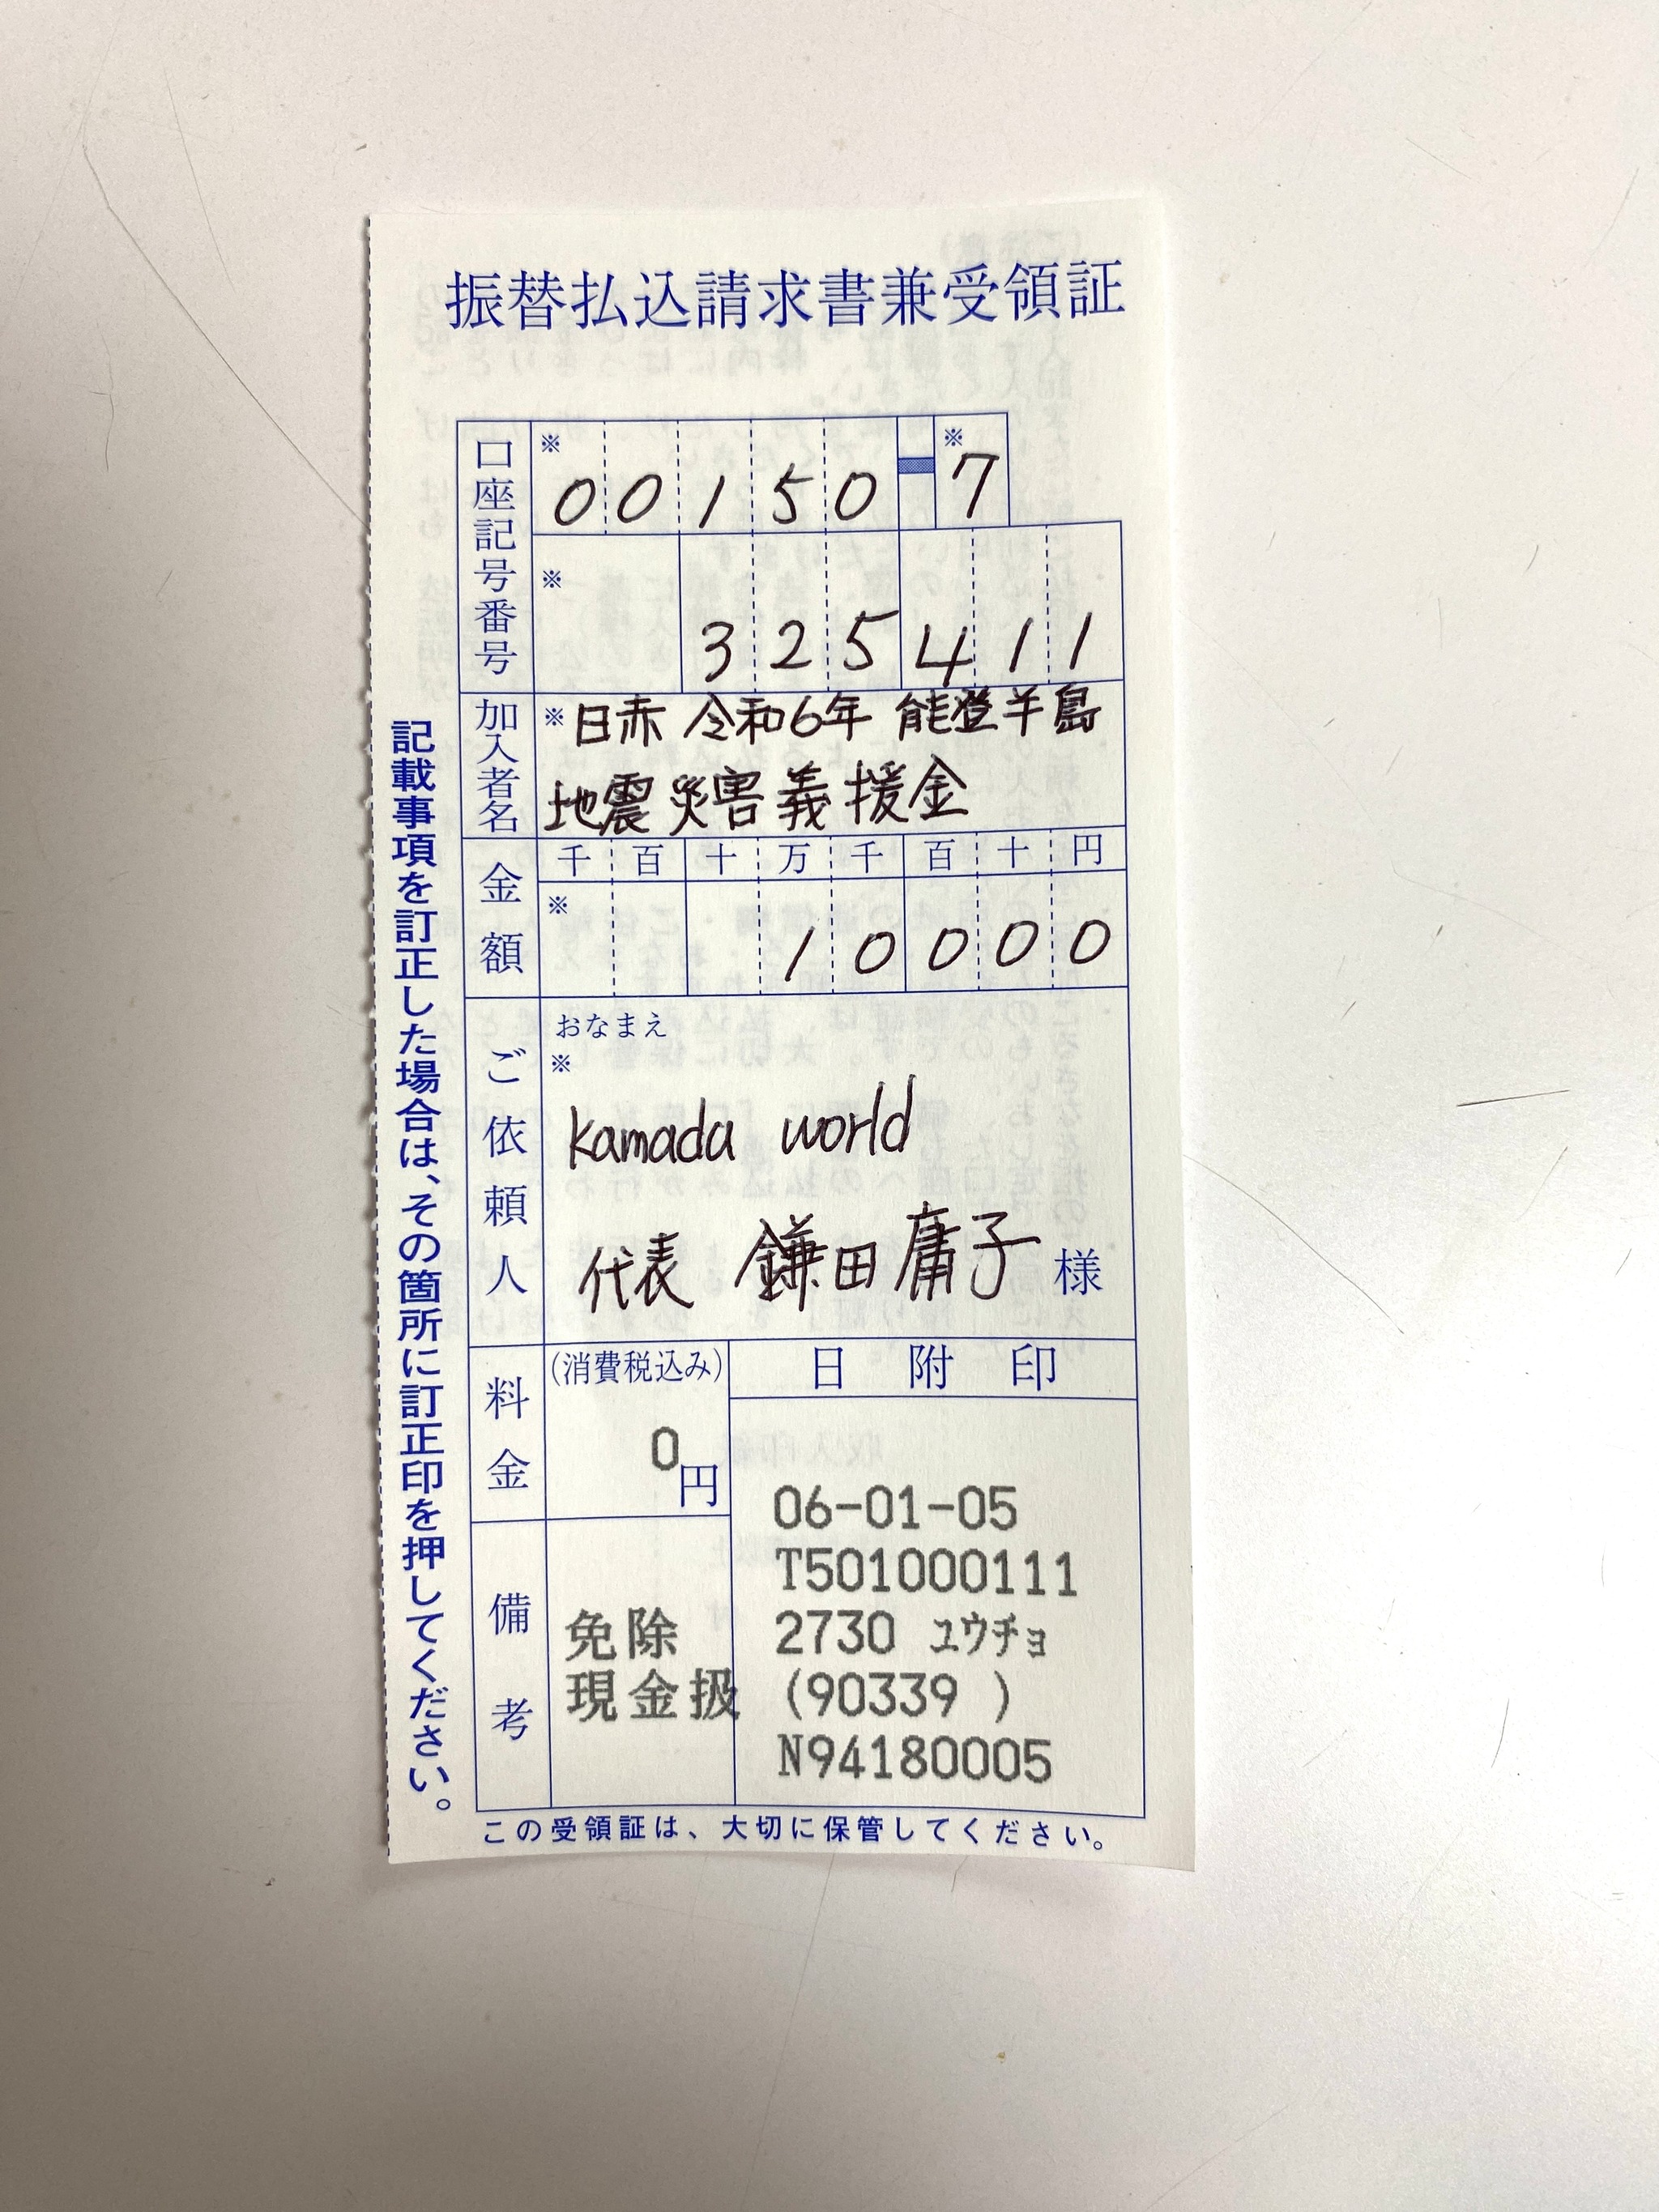 振替払込請求書兼受領証
口座記号番号
※ 00150-7
※ 325411
加入者名
※日赤 令和6年 能登半島
地震災害義援金
金額
千 百 十 万 千 百 十 円
※ 10000
ご依頼人
おなまえ
※
kamada world
代表 鎌田庸子 様
料金
(消費税込み)
0円
備考
免除
現金扱
日附印
06-01-05
T501000111
2730 ユウチョ
(90339 )
N94180005
記載事項を訂正した場合は、その箇所に訂正印を押してください。
この受領証は、大切に保管してください。